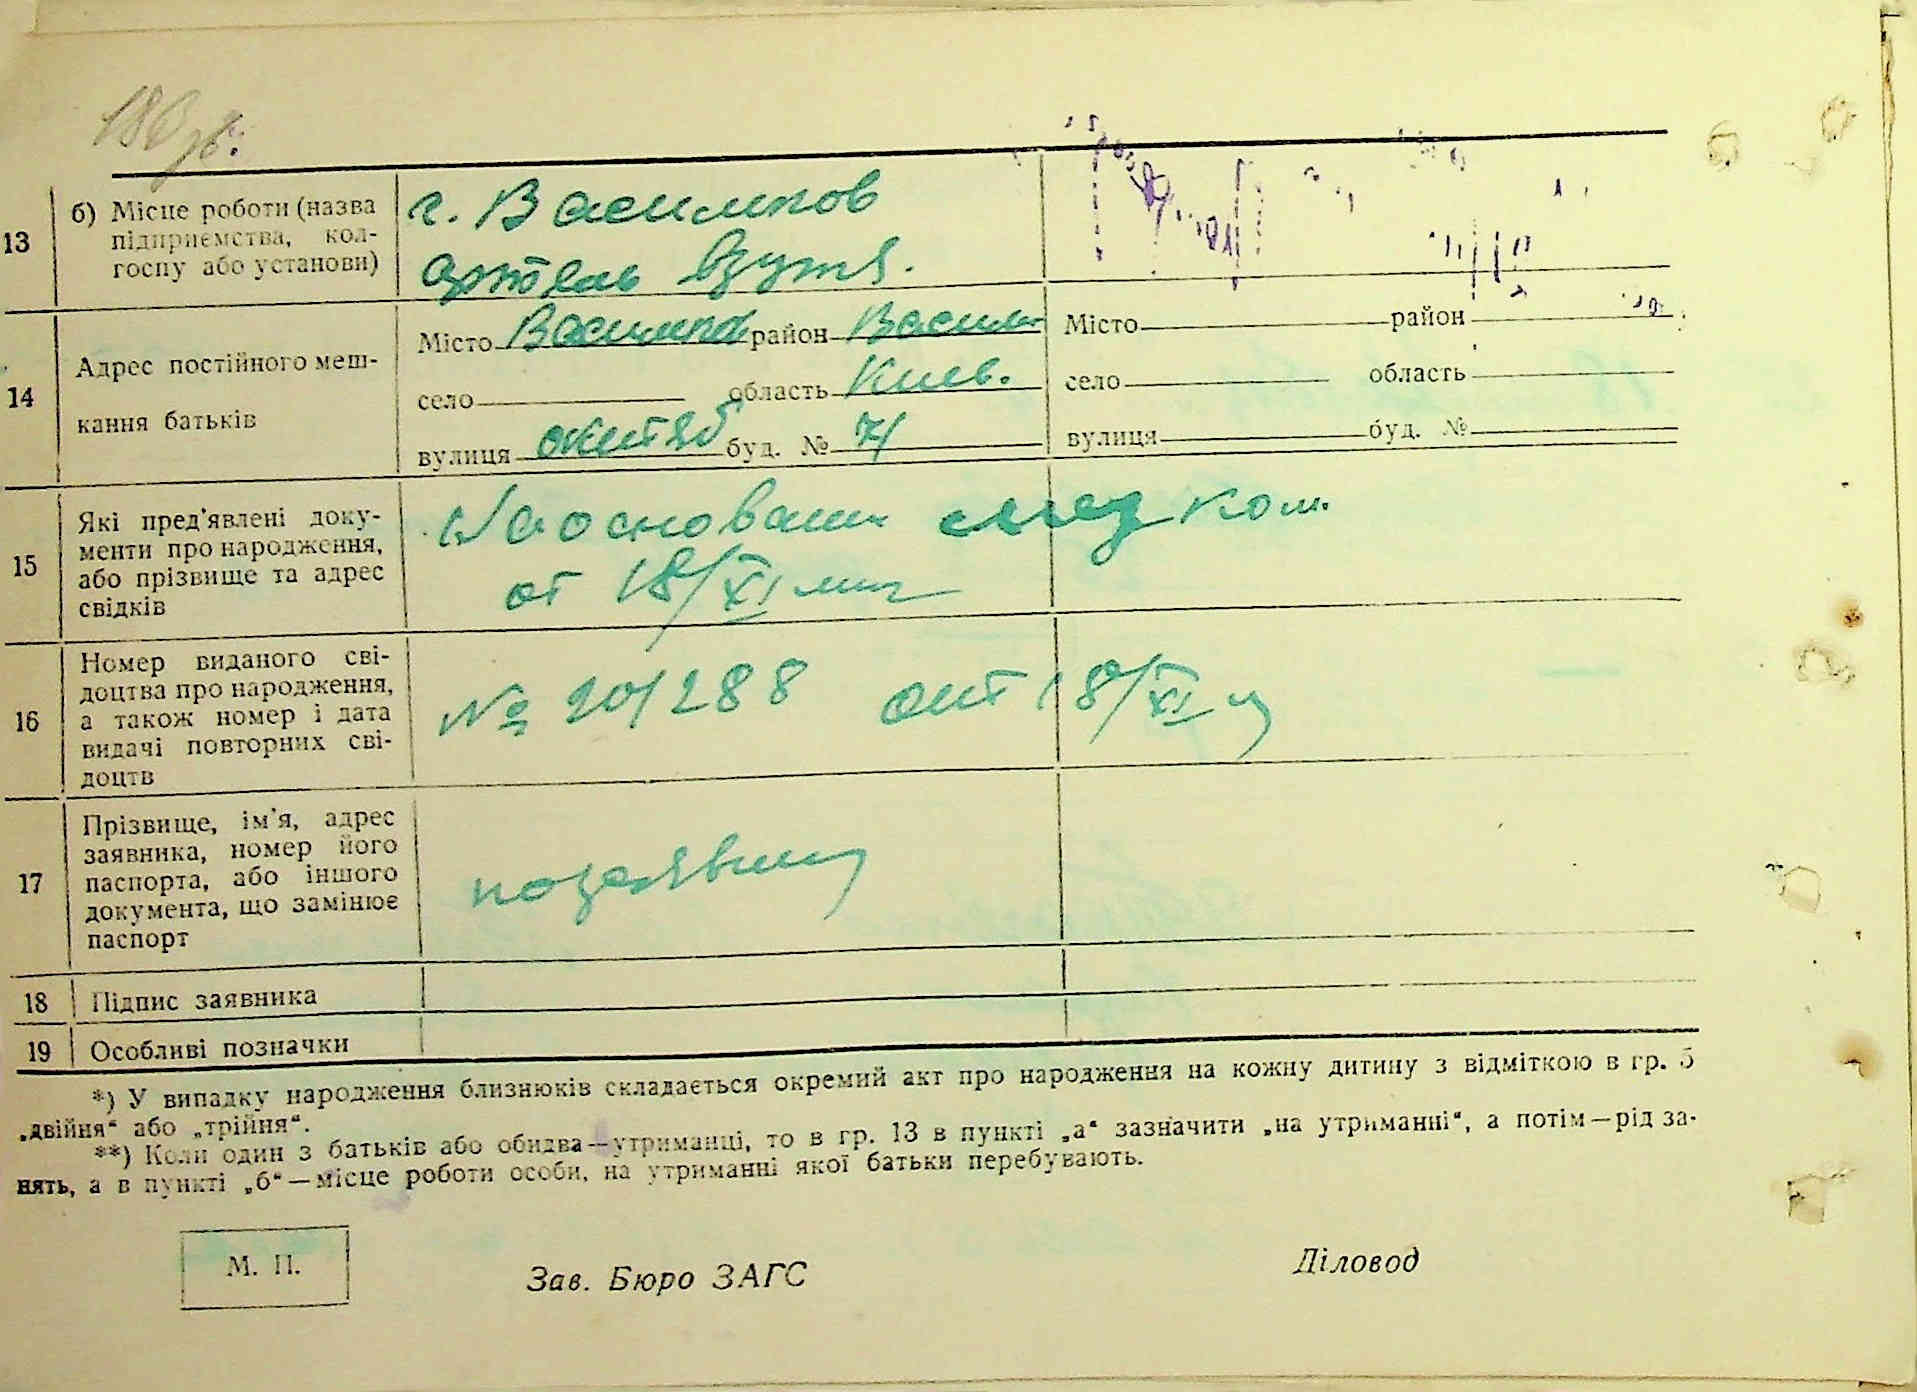 180 зв.
13
б) Місце роботи (назва
підприємства, кол-
госпу або установи)
г. Васильков
артель взутя.
14
Адрес постійного меш-
кання батьків
Місто Васильков район Василь
село область Киев.
вулиця октяб буд. № 71
Місто район
село область
вулиця буд. №
15
Які пред'явлені доку-
менти про народження,
або прізвище та адрес
свідків
На основании
от 18/XI
16
Номер виданого сві-
доцтва про народження,
а також номер і дата
видачі повторних сві-
доцтв
№ 201288 18/XI
17
Прізвище, ім'я, адрес
заявника, номер його
паспорта, або іншого
документа, що замінює
паспорт
18 Підпис заявника
19 Особливі позначки
*) У випадку народження близнюків складається окремий акт про народження на кожну дитину з відміткою в гр. 5
„двійня“ або „трійня“.
**) Коли один з батьків або обидва—утриманці, то в гр. 13 в пункті „а“ зазначити „на утриманні“, а потім—рід за-
нять, а в пункті „б“—місце роботи особи, на утриманні якої батьки перебувають.
М. П.
Зав. Бюро ЗАГС
Діловод